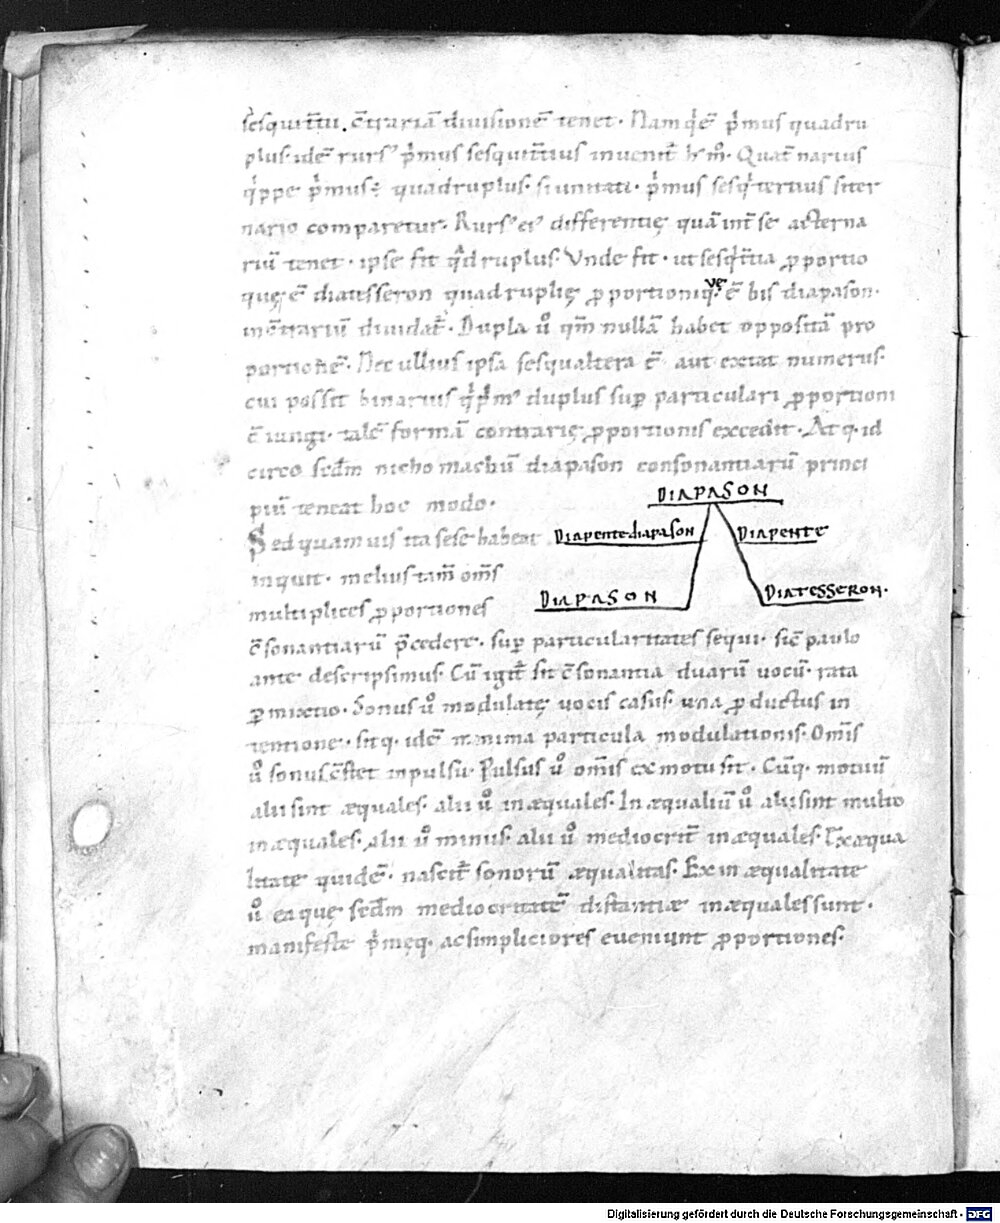 sesquit̅tiu. c̅trariā diuisionē tenet· Nam q̇ ē p̍mus quadru
plus· idē rurs᾽ p̍mus sesquit̅tius inuenit̅ h̅ m̊· Quat̅narius
q̍ppe p̍mus ÷ quadruplus· si unitati· p̍mus sesq̍tertius si ter
nario comparetur· Rurs᾽ ei᾽ differentię quā int̅ se ac terna
riū tenet· ipse fit q̊druplus· Vnde fit· ut sesq̍t̅tia ꝓportio
quę ē diatesseron quadruplę ꝓportioni q. ue ē bis diapason·
in c̅trariū diuidat̅· Dupla ů qm̄ nullā habet oppositā pro
portionē· Nec ullius ipsa sesqualtera ē aut extat numerus·
cui possit binarius q̍ p̍m᾽ duplus sup̲ particulari ꝓportioni
c̅iungi· talē formā contrarię ꝓportionis excedit· Atq· id
circo sed̅m nichomachū diapason consonantiarū princi
piū teneat hoc modo·
DIAPASON
Diapente diapason DIAPENTE
DIAPASON DIATESSERON·
Sed quamuis ita sese habeat
inquit· melius tam̄ om̄s
multiplices ꝓportiones
c̅sonantiarū p̅cedere· sup̲ particularitates sequi· sic̄ paulo
ante descripsimus· Cū igit̅ sit c̅sonantia duarū vocū· rata
p̲mixtio· Sonus ů modulatę uocis casus· una ꝓductus in
tentione· sitq· idē minima particula modulationis· Om̄is
ů sonus c̅stet inpulsu· Pulsus ů om̄is ex motu sit· Cūq· motuū
alii sint æquales· alii ů inæquales· In æqualiū ů alii sint multo
inæquales· alii ů minus· alii ů mediocrit̅ inæquales· Ex æqua
litate quidē· nascit̅ sonorū æqualitas· Ex in æqualitate
ů ea que sed̅m mediocritatē distantiæ inæquales sunt·
manifeste p̍męq· ac simpliciores eueniunt ꝓportiones·
Digitalisierung gefördert durch die Deutsche Forschungsgemeinschaft - DFG